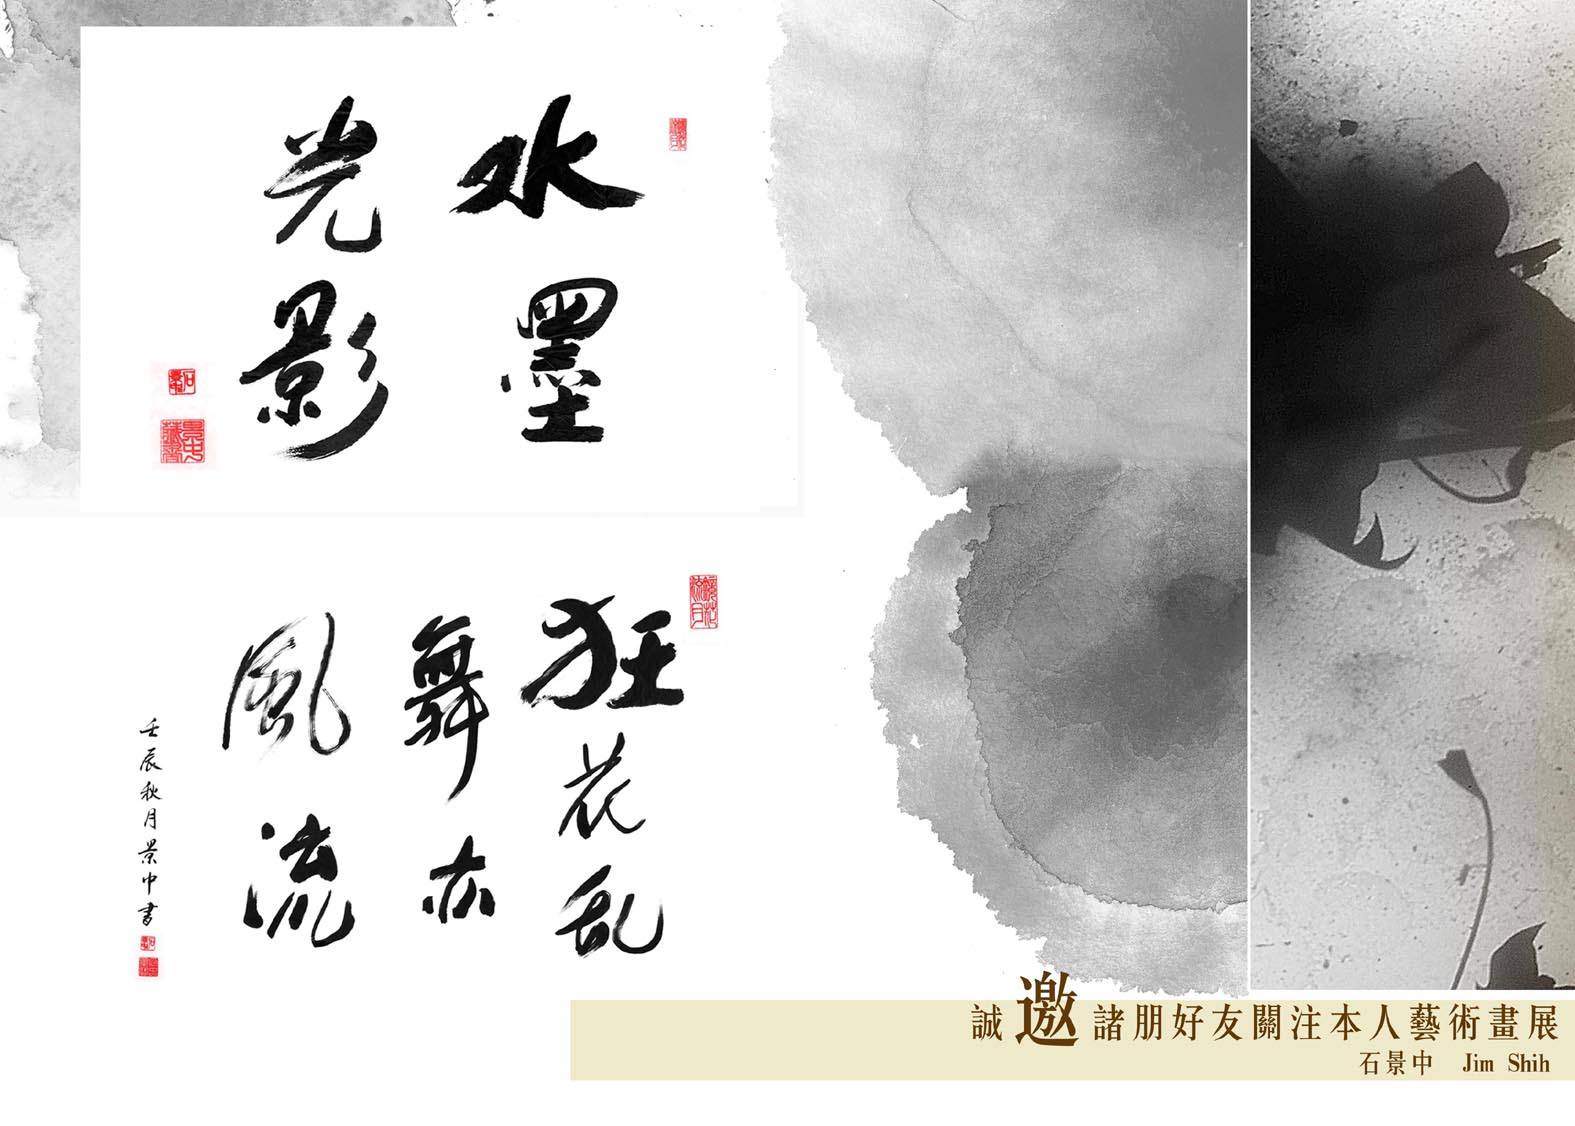 水墨
光影
狂花乱
舞亦
風流
壬辰秋月景中書
誠邀諸朋好友關注本人藝術畫展
石景中 Jim Shih